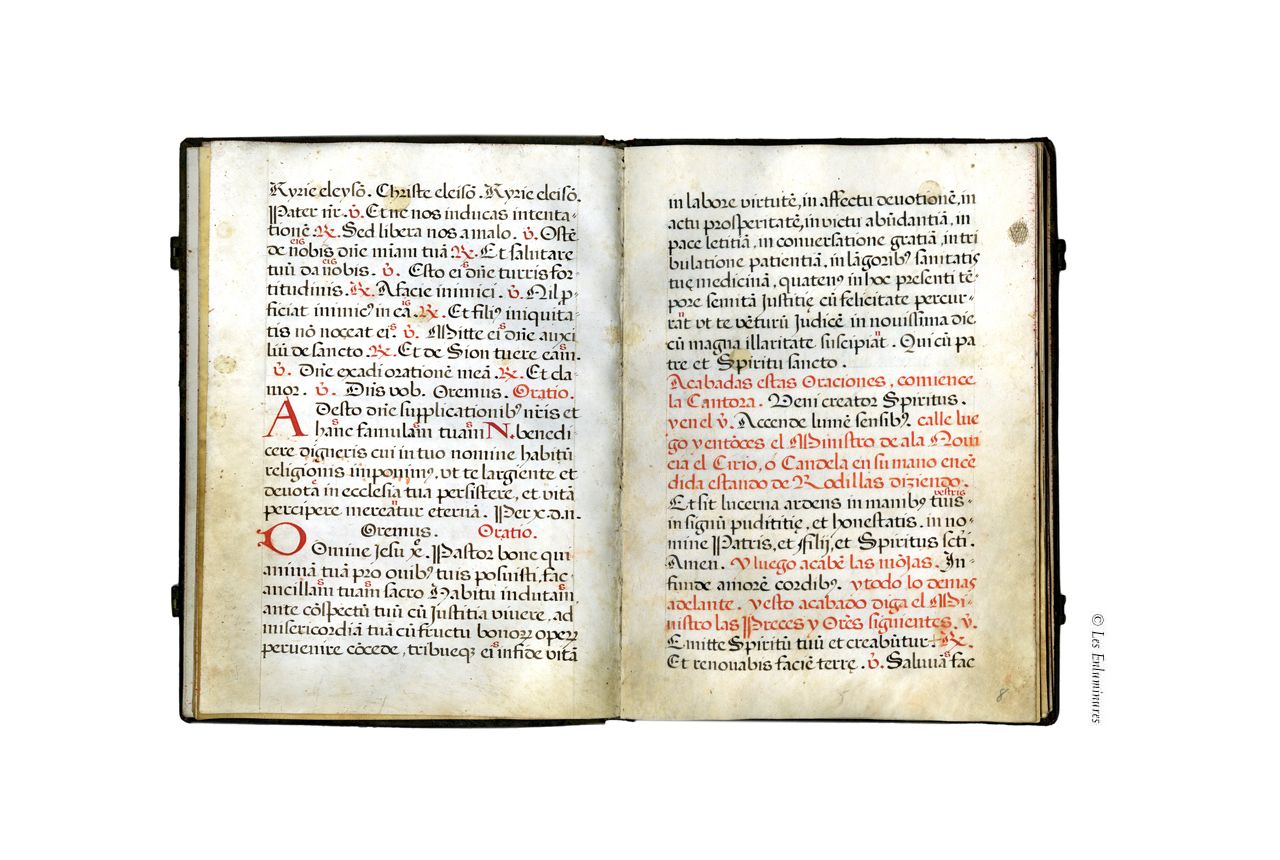 Kyrie eleysō. Christe eleisō. Kyrie eleisō.
Pater nr̄. ℣. Et ne nos inducas intenta-
tionē ℟. Sed libera nos a malo. ℣. Ostē
de nobis dn̄e mīam tuā ℟. Et salutare
eis
tuū da nobis. ℣. Esto ei dn̄e turris for-
eis s
titudinis. ℟. A facie inimici. ℣. Nil p-
ficiat inimicꝰ in eā. ℟. Et filiꝰ iniquita-
is
tis nō noceat ei. ℣. Mitte ei dn̄e auxi
s s
liū de sancto. ℟. Et de Sion tuere eam.
℣. Dn̄e exadi orationē meā. ℟. Et cla-
mor. ℣. Dn̄s vob. Oremus. Oratio.
Adesto dn̄e supplicationibꝰ nr̄is et
hanc famulam tuam N. benedi-
cere digneris cui in tuo nomine habitū
religionis imponimꝰ, vt te largiente et
devota in ecclesia tua persistere, et vitā
percipere mereatur eternā. Per x. d. n.
Oremus. Oratio.
Domine Jesu xe. Pastor bone qui
animā tuā pro ovibꝰ tuis posuisti, fac
ancillam tuam sacro Habitu indutam,
ante cōspectū tuū cū Justitia vivere, ad
misericordiā tuā cū fructu bonoꝝ opeꝝ
pervenire cōcede, tribueqꝫ ei in fide vitā
in labore virtutē, in affectu devotionē, in
actu prosperitatē, in victu abūdantiā, in
pace letitiā, in conversatione gratiā, in tri
bulatione patientiā, in lāgoribꝰ sanitatis
tuę medicinā, quatenꝰ in hoc presenti tē-
pore semitā Justitię cū felicitate percur-
rāt vt te vēturū Judicē in novissima die
cū magna illaritate suscipiat. Qui cū pa
tre et Spiritu sancto.
Acabadas estas Oraciones, comience
la Cantora. Veni creator Spiritus.
y en el ℣. Accende lumē sensibꝰ. calle lue
go y entōces el Ministro de a la Novi
cia el Cirio, o Candela en su mano encē
dida estando de Rodillas diziendo.
Et sit lucerna ardens in manibꝰ tuis
vestris
in signū pudititię, et honestatis. in no-
mine Patris, et filij, et Spiritus scti.
Amen. Y luego acabē las mōjas. In-
funde amorē cordibꝰ. y todo lo demas
adelante. y esto acabado diga el Mi-
nistro las Preces y Orēs siguientes. ℣.
Emitte Spiritū tuū et creabūtur. ℟.
Et renovabis faciē terrę. ℣. Salvā fac
8
© Les Enluminures